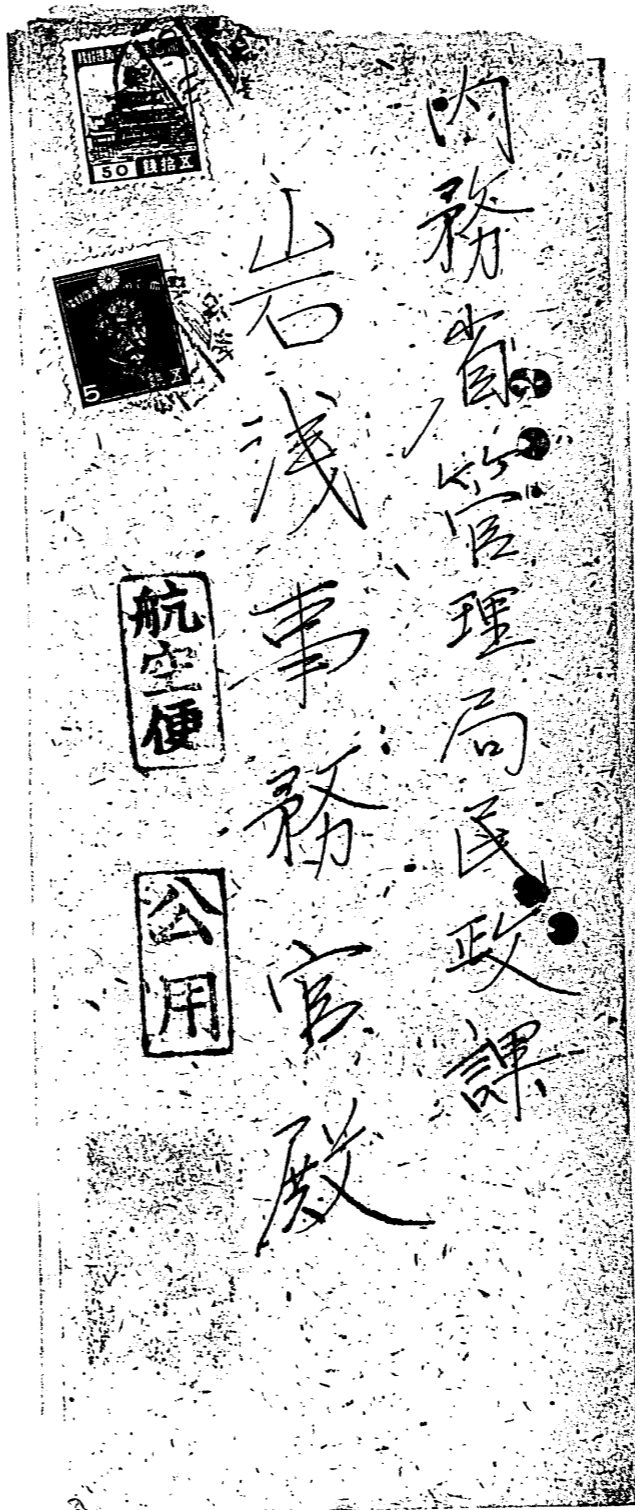 内務省管理局民政課
岩浅事務官殿
50 銭拾五
5 銭五
航空便
公用